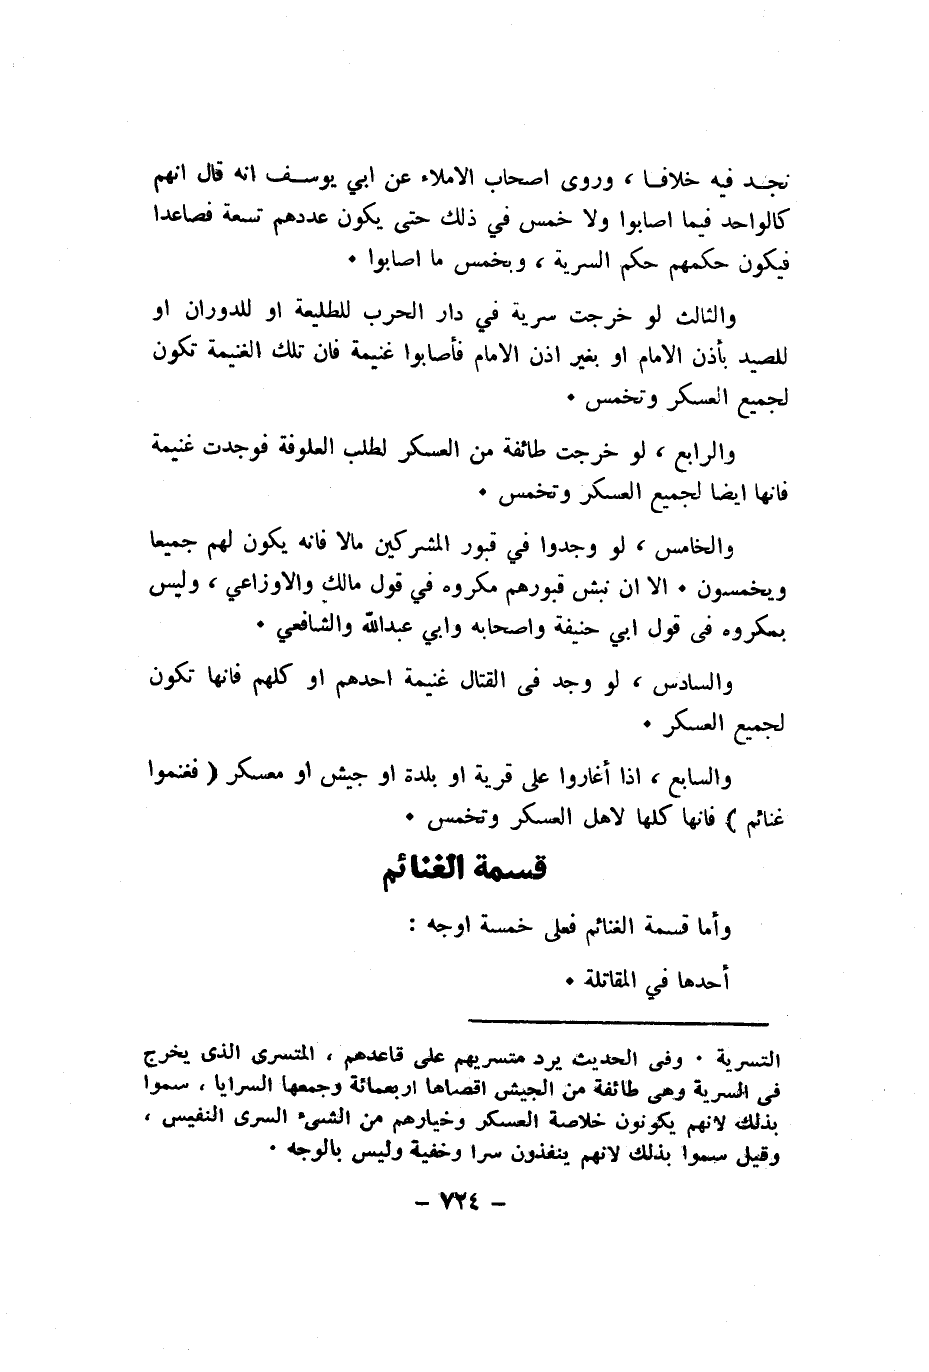 نجد فيه خلافا ، وروى اصحاب الاملاء عن ابي يوسف انه قال انهم
كالواحد فيما اصابوا ولا خمس في ذلك حتى يكون عددهم تسعة فصاعدا
فيكون حكمهم حكم السرية ، ويخمس ما اصابوا ٠
والثالث لو خرجت سرية في دار الحرب للطليعة او للدوران او
للصيد بأذن الامام او بغير اذن الامام فأصابوا غنيمة فان تلك الغنيمة تكون
لجميع العسكر وتخمس ٠
والرابع ، لو خرجت طائفة من العسكر لطلب العلوفة فوجدت غنيمة
فانها ايضا لجميع العسكر وتخمس ٠
والخامس ، لو وجدوا في قبور المشركين مالا فانه يكون لهم جميعا
ويخمسون ٠ الا ان نبش قبورهم مكروه في قول مالك والاوزاعي ، وليس
بمكروه فى قول ابي حنيفة واصحابه وابي عبدالله والشافعي ٠
والسادس ، لو وجد فى القتال غنيمة احدهم او كلهم فانها تكون
لجميع العسكر ٠
والسابع ، اذا أغاروا على قرية او بلدة او جيش او معسكر ( فغنموا
غنائم ) فانها كلها لاهل العسكر وتخمس ٠
قسمة الغنائم
وأما قسمة الغنائم فعلى خمسة اوجه :
أحدها في المقاتلة ٠
التسرية ٠ وفى الحديث يرد متسريهم على قاعدهم ، المتسرى الذى يخرج
فى السرية وهى طائفة من الجيش اقصاها اربعمائة وجمعها السرايا ، سموا
بذلك لانهم يكونون خلاصة العسكر وخيارهم من الشىء السرى النفيس ،
وقيل سموا بذلك لانهم ينفذون سرا وخفية وليس بالوجه ٠
– ٧٢٤ –